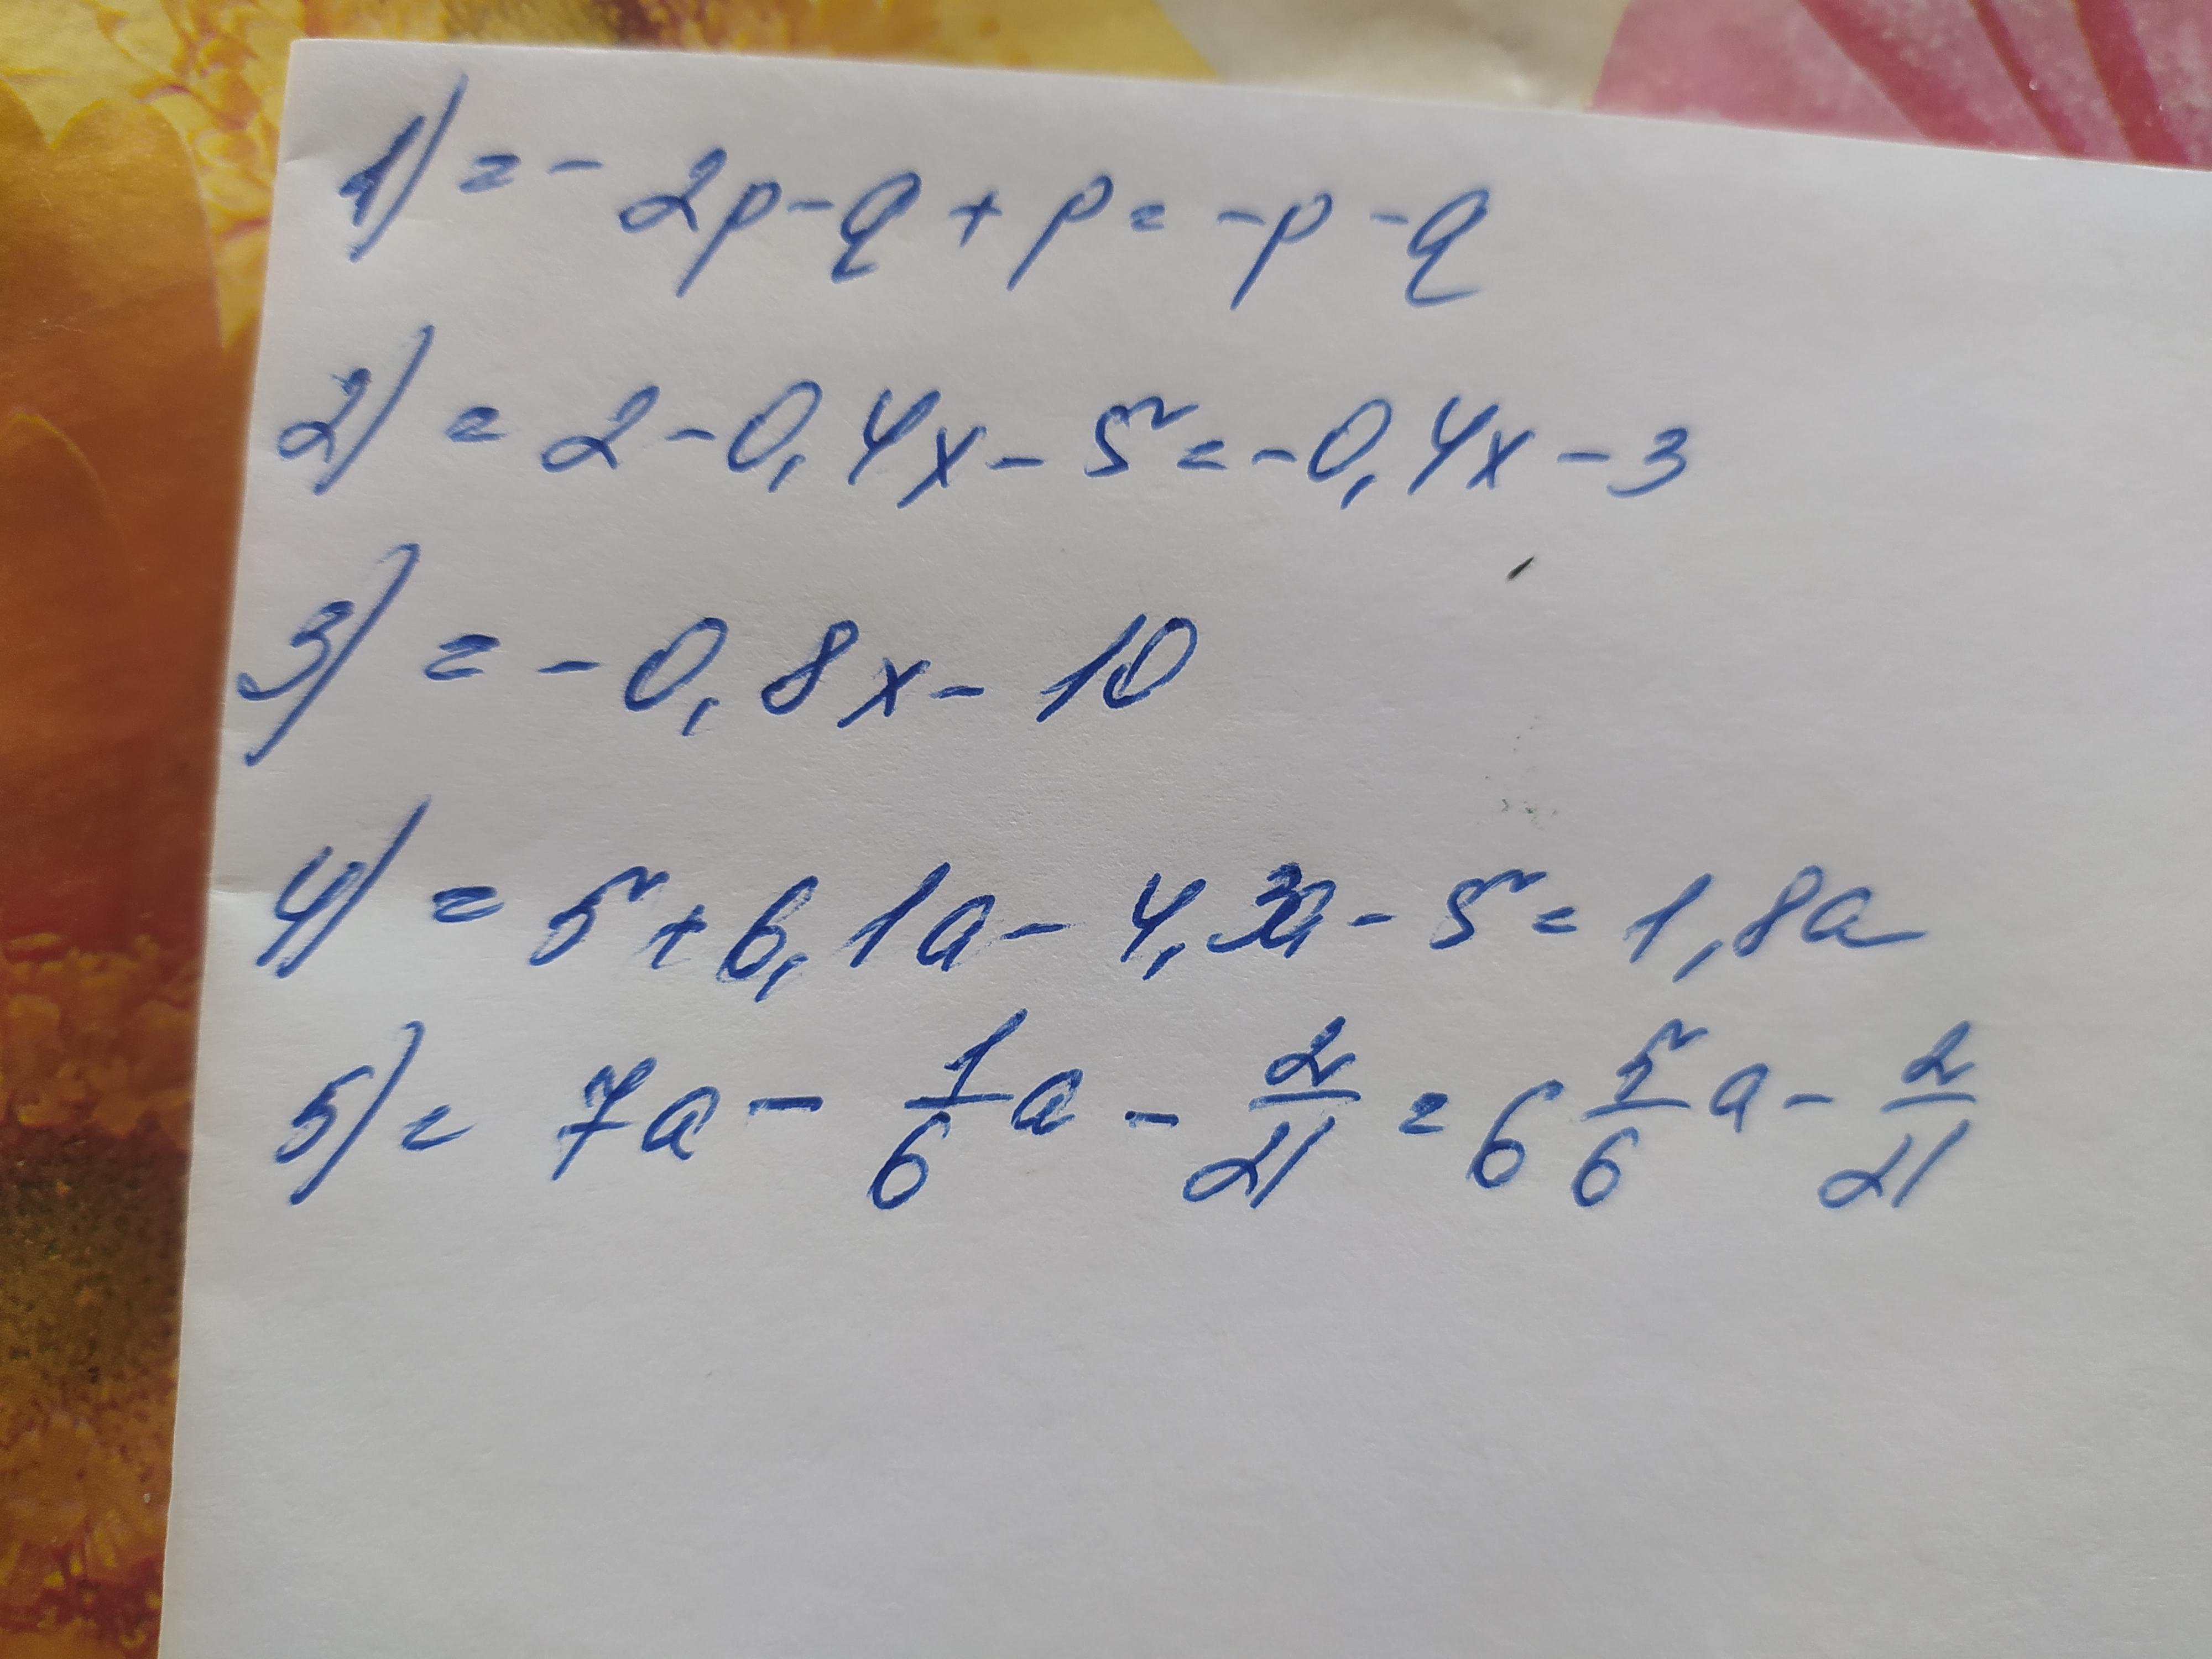 1) = - 2p - q + p = -p - q
2) = 2 - 0,4x - 5 = -0,4x - 3
3) = -0,8x - 10
4) = 5 + 6,1a - 4,3a - 5 = 1,8a
5) = 7a - 1/6 a - 2/21 = 6 5/6 a - 2/21